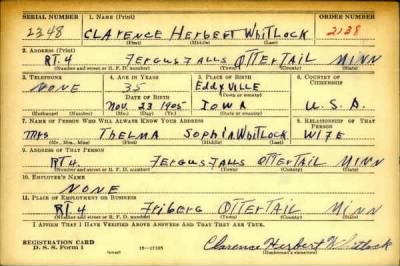 SERIAL NUMBER 1. NAME (Print) ORDER NUMBER
2348 CLARENCE HERBERT WHITLOCK 2138
(First) (Middle) (Last)
2. ADDRESS (Print)
RT.4 FERGUS FALLS OTTERTAIL MINN
(Number and street or R. F. D. number) (Town) (County) (State)
3. TELEPHONE 4. AGE IN YEARS 5. PLACE OF BIRTH 6. COUNTRY OF CITIZENSHIP
NONE 35 EDDYVILLE
DATE OF BIRTH (Town or county)
NOV. 23 1905 IOWA U.S.A.
(Exchange) (Number) (Mo.) (Day) (Yr.) (State or country)
7. NAME OF PERSON WHO WILL ALWAYS KNOW YOUR ADDRESS 8. RELATIONSHIP OF THAT PERSON
MRS THELMA SOPHIA WHITLOCK WIFE
(Mr., Mrs., Miss) (First) (Middle) (Last)
9. ADDRESS OF THAT PERSON
RT4. FERGUS FALLS OTTERTAIL MINN
(Number and street or R. F. D. number) (Town) (County) (State)
10. EMPLOYER'S NAME
NONE
11. PLACE OF EMPLOYMENT OR BUSINESS
RT.4 FRIBERG OTTERTAIL MINN
(Number and street or R. F. D. number) (Town) (County) (State)
I AFFIRM THAT I HAVE VERIFIED ABOVE ANSWERS AND THAT THEY ARE TRUE.
REGISTRATION CARD
D. S. S. Form 1 Clarence Herbert Whitlock
(Registrant's signature)